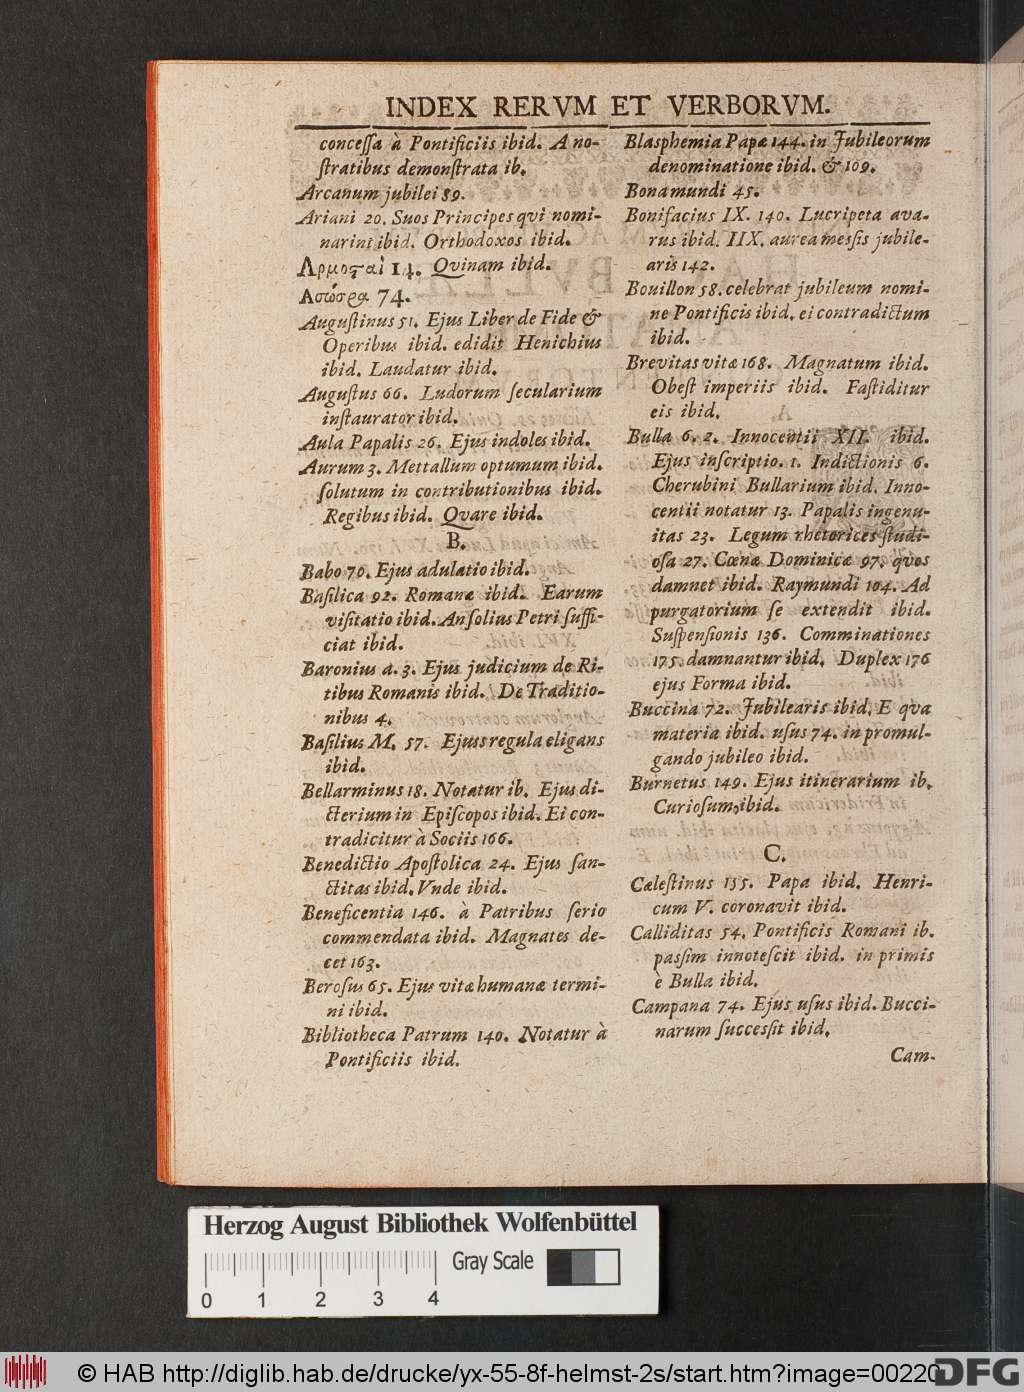 INDEX RERVM ET VERBORVM.
conceſſa à Pontificiis ibid. A no-
ſtratibus demonſtrata ib.
Arcanum jubilei 89.
Ariani 20. Suos Principes qvi nomi-
narint ibid. Orthodoxos ibid.
14. Qvinam ibid.
74.
Auguſtinus 51. Ejus Liber de Fide &
Operibus ibid. edidit Henichius
ibid. Laudatur ibid.
Auguſtus 66. Ludorum ſecularium
inſtaurator ibid.
Aula Papalis 26. Ejus indoles ibid.
Aurum 3. Mettallum optumum ibid.
ſolutum in contributionibus ibid.
Regibus ibid. Qvare ibid.
B.
Babo 70. Ejus adulatio ibid.
Baſilica 92. Romanæ ibid. Earum
viſitatio ibid. An ſolius Petri ſuffi-
ciat ibid.
Baronius a. 3. Ejus judicium de Ri-
tibus Romanis ibid. De Traditio-
nibus 4.
Baſilius M. 57. Ejus regula eligans
ibid.
Bellarminus 18. Notatur ib. Ejus di-
cterium in Epiſcopos ibid. Ei con-
tradicitur à Sociis 166.
Benedictio Apoſtolica 24. Ejus ſan-
ctitas ibid. Vnde ibid.
Beneficentia 146. à Patribus ſerio
commendata ibid. Magnates de-
cet 163.
Beroſus 65. Ejus vitæ humanæ termi-
ni ibid.
Bibliotheca Patrum 140. Notatur à
Pontificiis ibid.
Blasphemia Papæ 144. in Jubileorum
denominatione ibid. & 109.
Bonamundi 45.
Bonifacius IX. 140. Lucripeta ava-
rus ibid. IIX. aurea meſsis jubile-
aris 142.
Bouillon 58. celebrat jubileum nomi-
ne Pontificis ibid. ei contradictum
ibid.
Brevitas vitæ 168. Magnatum ibid.
Obeſt imperiis ibid. Faſtiditur
eis ibid.
Bulla 6. 2. Innocentii XII. ibid.
Ejus inſcriptio. 1. Indictionis 6.
Cherubini Bullarium ibid. Inno-
centii notatur 13. Papalis ingenu-
itas 23. Legum rhetorices ſtudi-
oſa 27. Cœnæ Dominicæ 97. qvos
damnet ibid. Raymundi 104. Ad
purgatorium ſe extendit ibid.
Suſpenſionis 136. Comminationes
175. damnantur ibid. Duplex 176
ejus Forma ibid.
Buccina 72. Jubilearis ibid. E qva
materia ibid. uſus 74. in promul-
gando jubileo ibid.
Burnetus 149. Ejus itinerarium ib.
Curioſum ibid.
C.
Cæleſtinus 155. Papa ibid. Henri-
cum V. coronavit ibid.
Calliditas 54. Pontificis Romani ib.
paſsim innoteſcit ibid. in primis
è Bulla ibid.
Campana 74. Ejus uſus ibid. Bucci-
narum ſucceſsit ibid.
Cam-
Herzog August Bibliothek Wolfenbüttel
Gray Scale
0 1 2 3 4
© HAB http://diglib.hab.de/drucke/yx-55-8f-helmst-2s/start.htm?image=00220
DFG